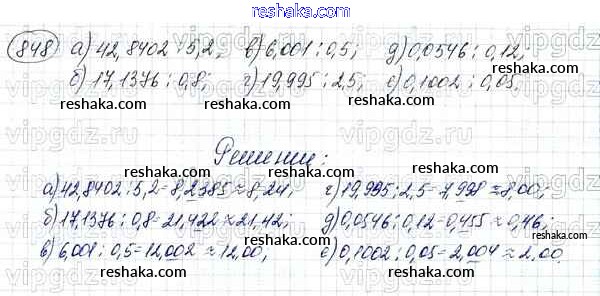 reshaka.com
848) а) 42,8402 : 5,2; в) 6,001 : 0,5; д) 0,0546 : 0,12;
reshaka.com
б) 17,1376 : 0,8; г) 19,995 : 2,5; е) 0,1002 : 0,05.
reshaka.com reshaka.com reshaka.com
Решение:
reshaka.com reshaka.com
а) 42,8402 : 5,2 = 8,2385 ≈ 8,24; г) 19,995 : 2,5 = 7,998 ≈ 8,00;
reshaka.com
б) 17,1376 : 0,8 = 21,422 ≈ 21,42; д) 0,0546 : 0,12 = 0,455 ≈ 0,46;
reshaka.com reshaka.com
в) 6,001 : 0,5 = 12,002 ≈ 12,00; е) 0,1002 : 0,05 = 2,004 ≈ 2,00
reshaka.com reshaka.com